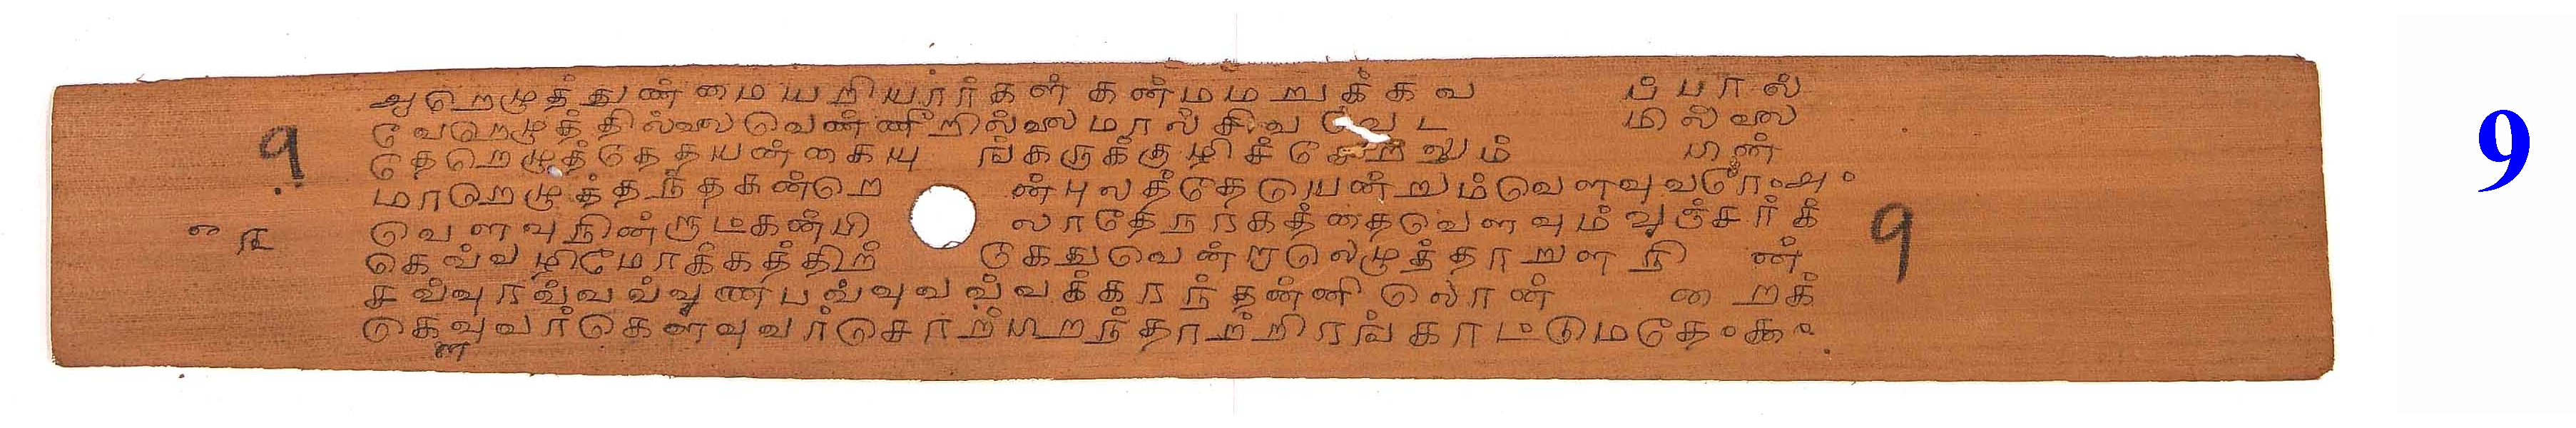 ஆறெழுத்துண்மையறியார்கள் கன்மமறுக்கவ ப்பால்
வேறெழுத்தில்லைவெண்ணீறில்லைமால் சிவவேட மில்லை
தேறெழுத்தேதயன்கையு ங்கருக்குழிச்சேற்றலும் பண்
மாறெழுத்தந்தகன்றெ ன்புலத்தேடுயென்றும்வௌவுவரே௦அ௦
9
9
வௌவுநின்ரூடகன்பி லாதேநரகத்தைவௌவும் வஞ்சர்க்
கெவ்வழிமோக்கத்திற் கேதுவென்றலெழுத்தாறுள நி ன்
சவ்வுரவ்வவ்வுணபவ்வுவவ்வக்கரந்தன்னிலொன் றைக்
கௌவுவர்கௌவுவர்சொற்பிறந்தாற்றிரங்காட்டுமதே௦க௦
9